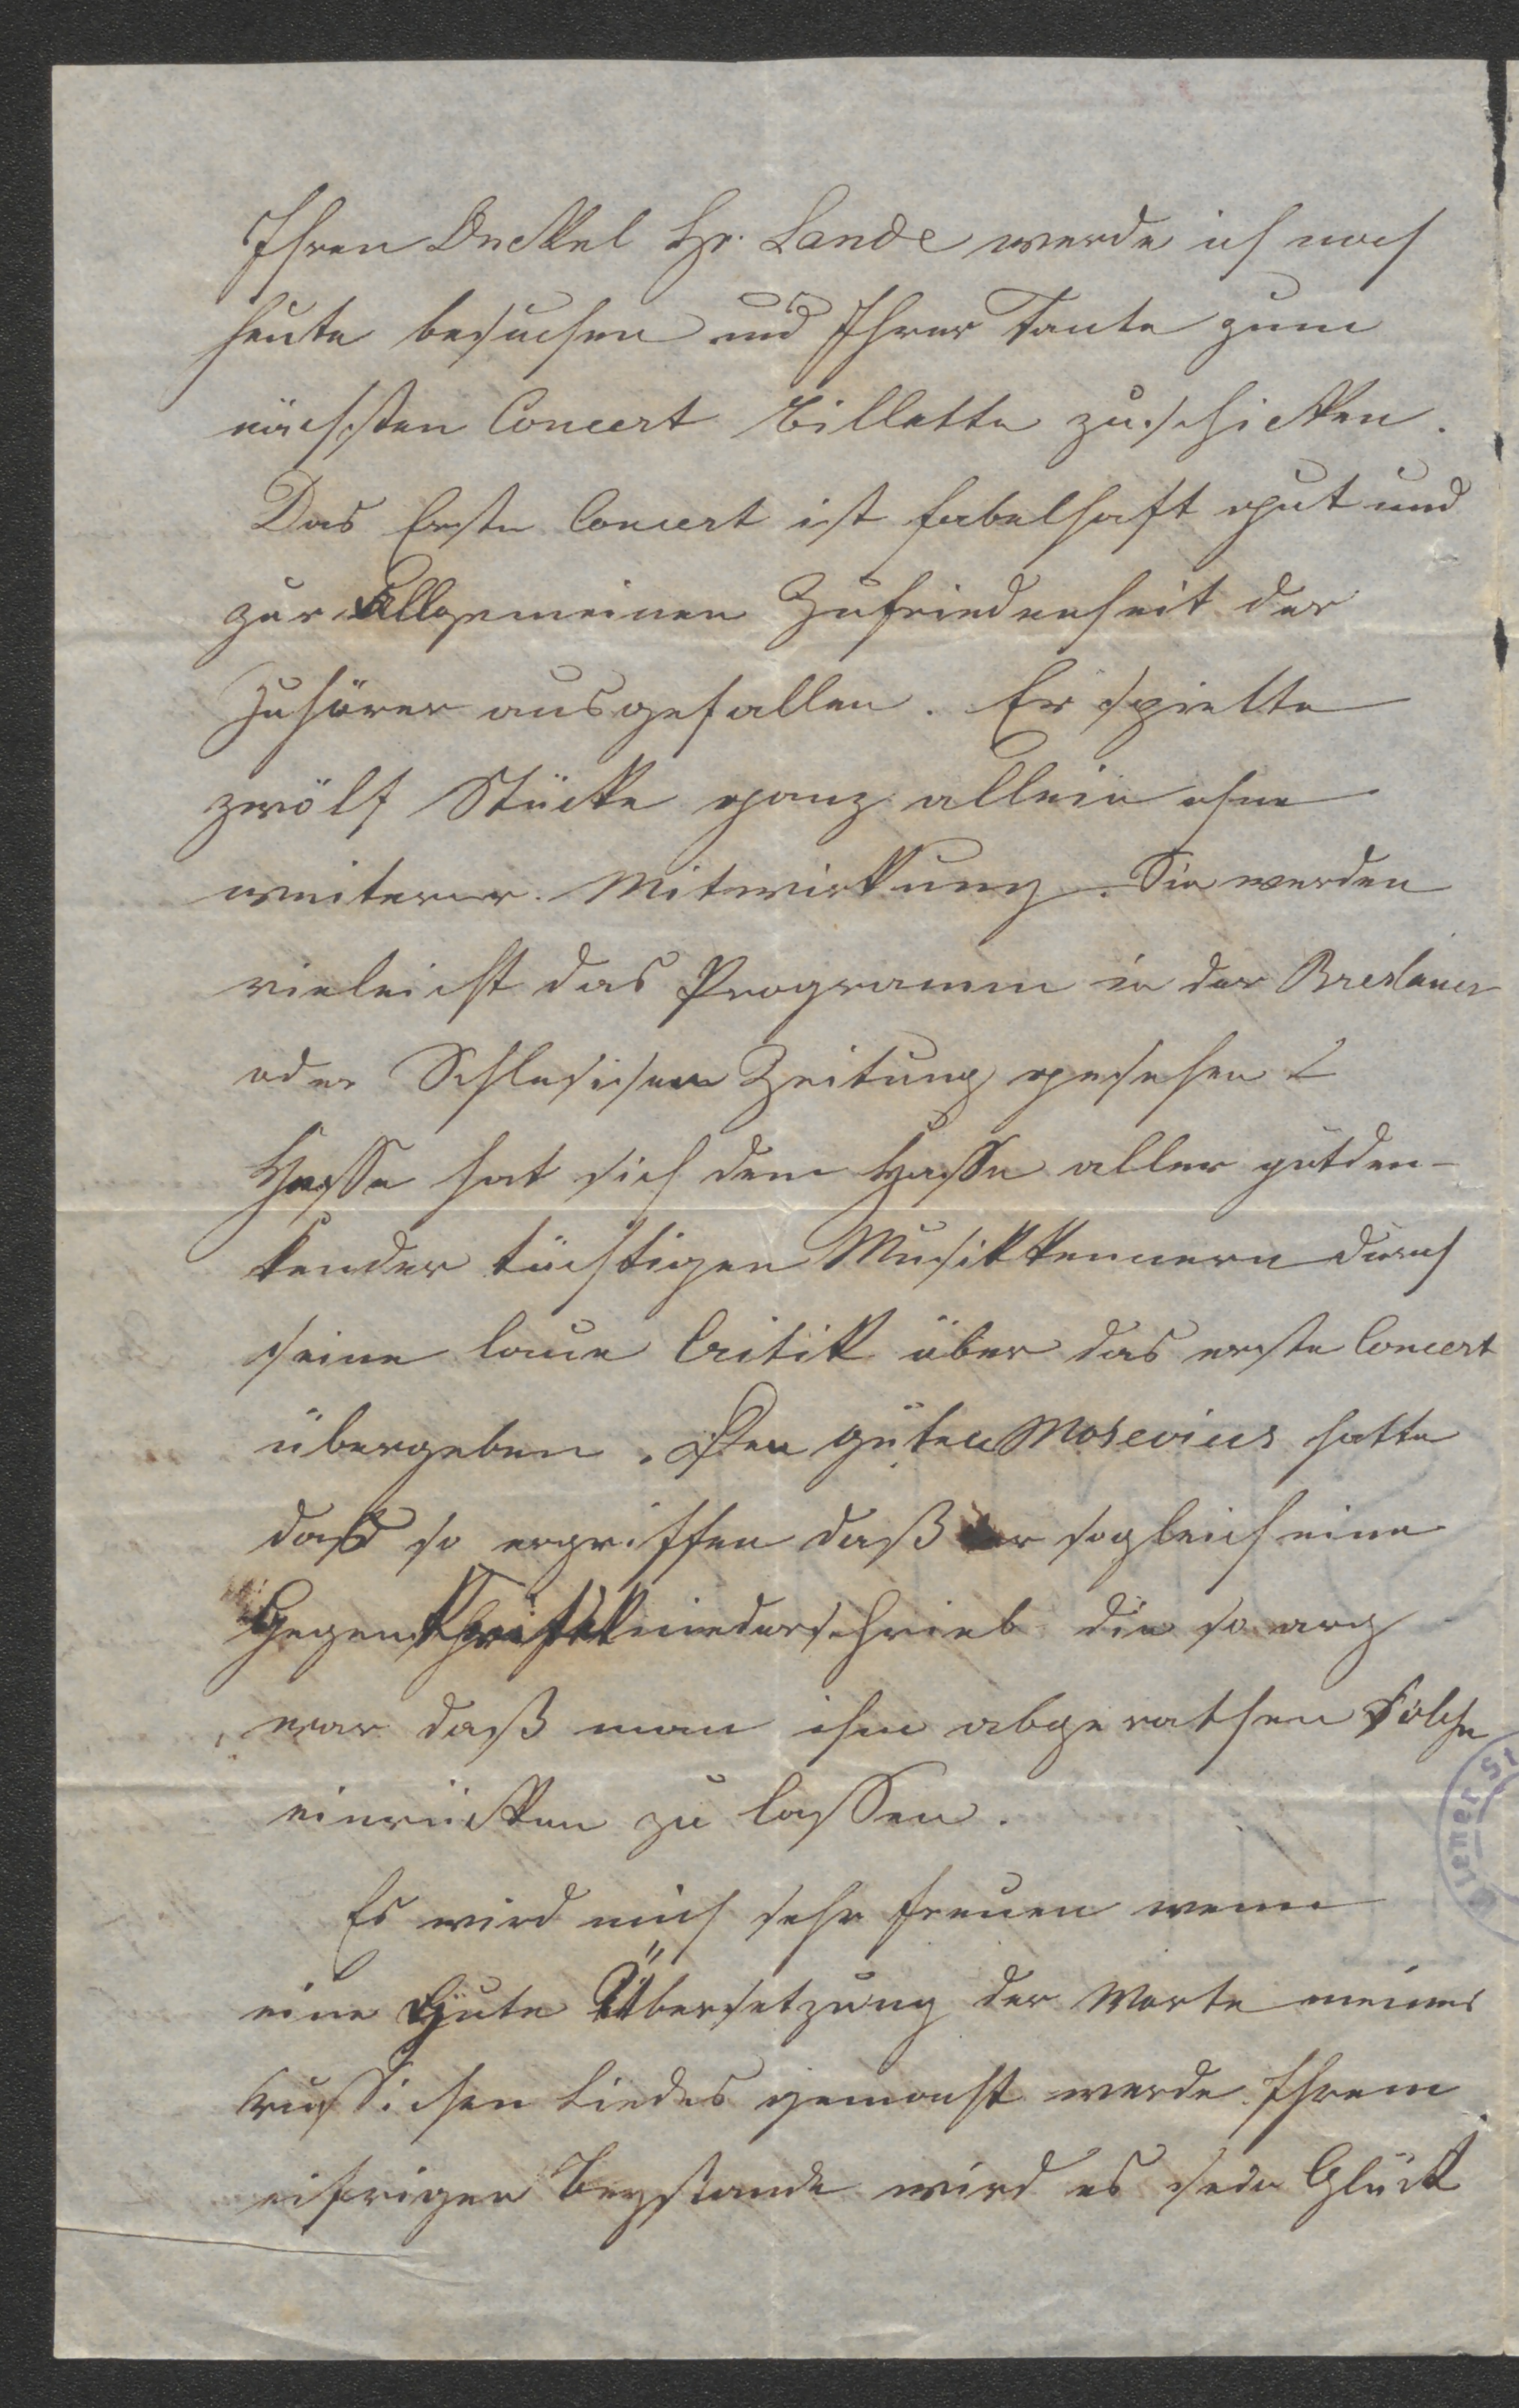 Ihren Onckel Hr. Lande werde ich noch
heute besuchen und Ihrer Tante zum
nächsten Concert Billette zuschicken.
Das Erste Concert ist fabelhaft gut und
zur Allgemeinen Zufriedenheit der
Zuhörer ausgefallen. Er spielte
zwölf Stücke ganz allein ohne
weiterer Mitwirkung. Sie werden
vieleicht das Programm in der Breslauer
oder Schlesischen Zeitung gesehen?
Hesse hat sich dem Hasse aller gutden-
kender tüchtigen Musikkennern durch
seine laue Critik über das erste Concert
übergeben. Den guten Mosevius hatte
das so ergriffen daß er sogleich eine
Gegen niederschrieb die so arg
war daß man ihm abgerathen solche
einrücken zu lassen.
Es wird mich sehr freuen wenn
eine Gute Übersetzung der Worte meines
russischen Liedes gemacht werde. Ihrem
eifrigen Beystande wird es sein Glück
Wiener St